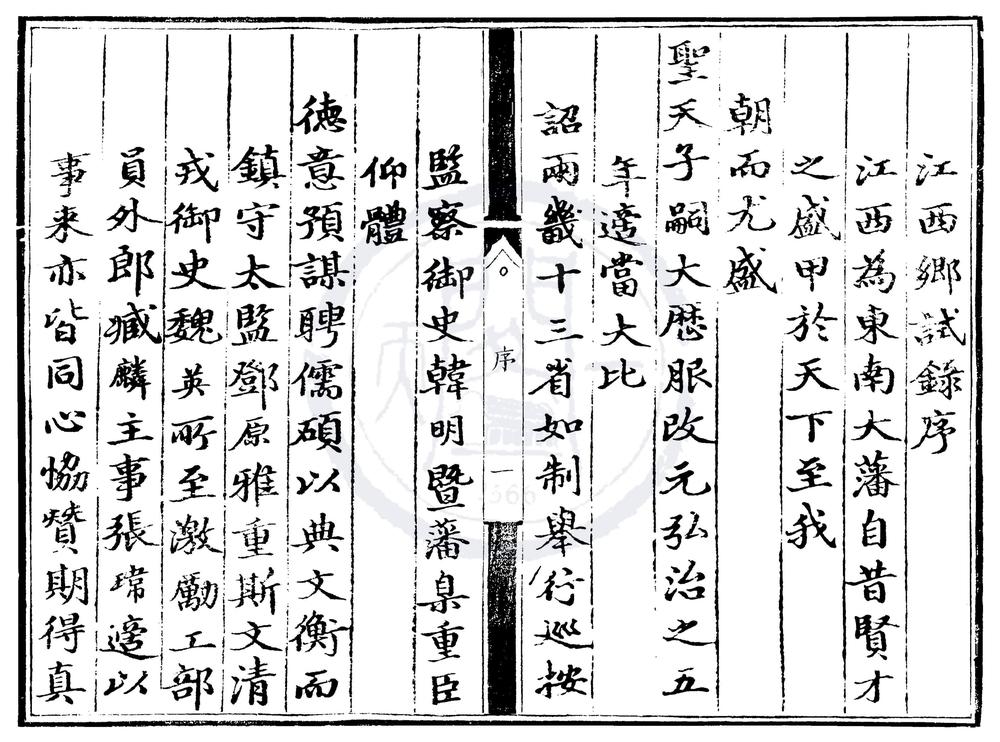 江西鄉試錄序
江西為東南大藩自昔賢才
之盛甲於天下至我
朝而尤盛
聖天子嗣大歷服改元弘治之五
年適當大比
詔兩畿十三省如制舉行巡按
序
一
監察御史韓明暨藩臬重臣
仰體
德意預謀聘儒碩以典文衡而
鎮守太監鄧原雅重斯文清
戎御史魏英所至激勵工部
員外郎臧麟主事張瑋適以
事來亦皆同心協贊期得真